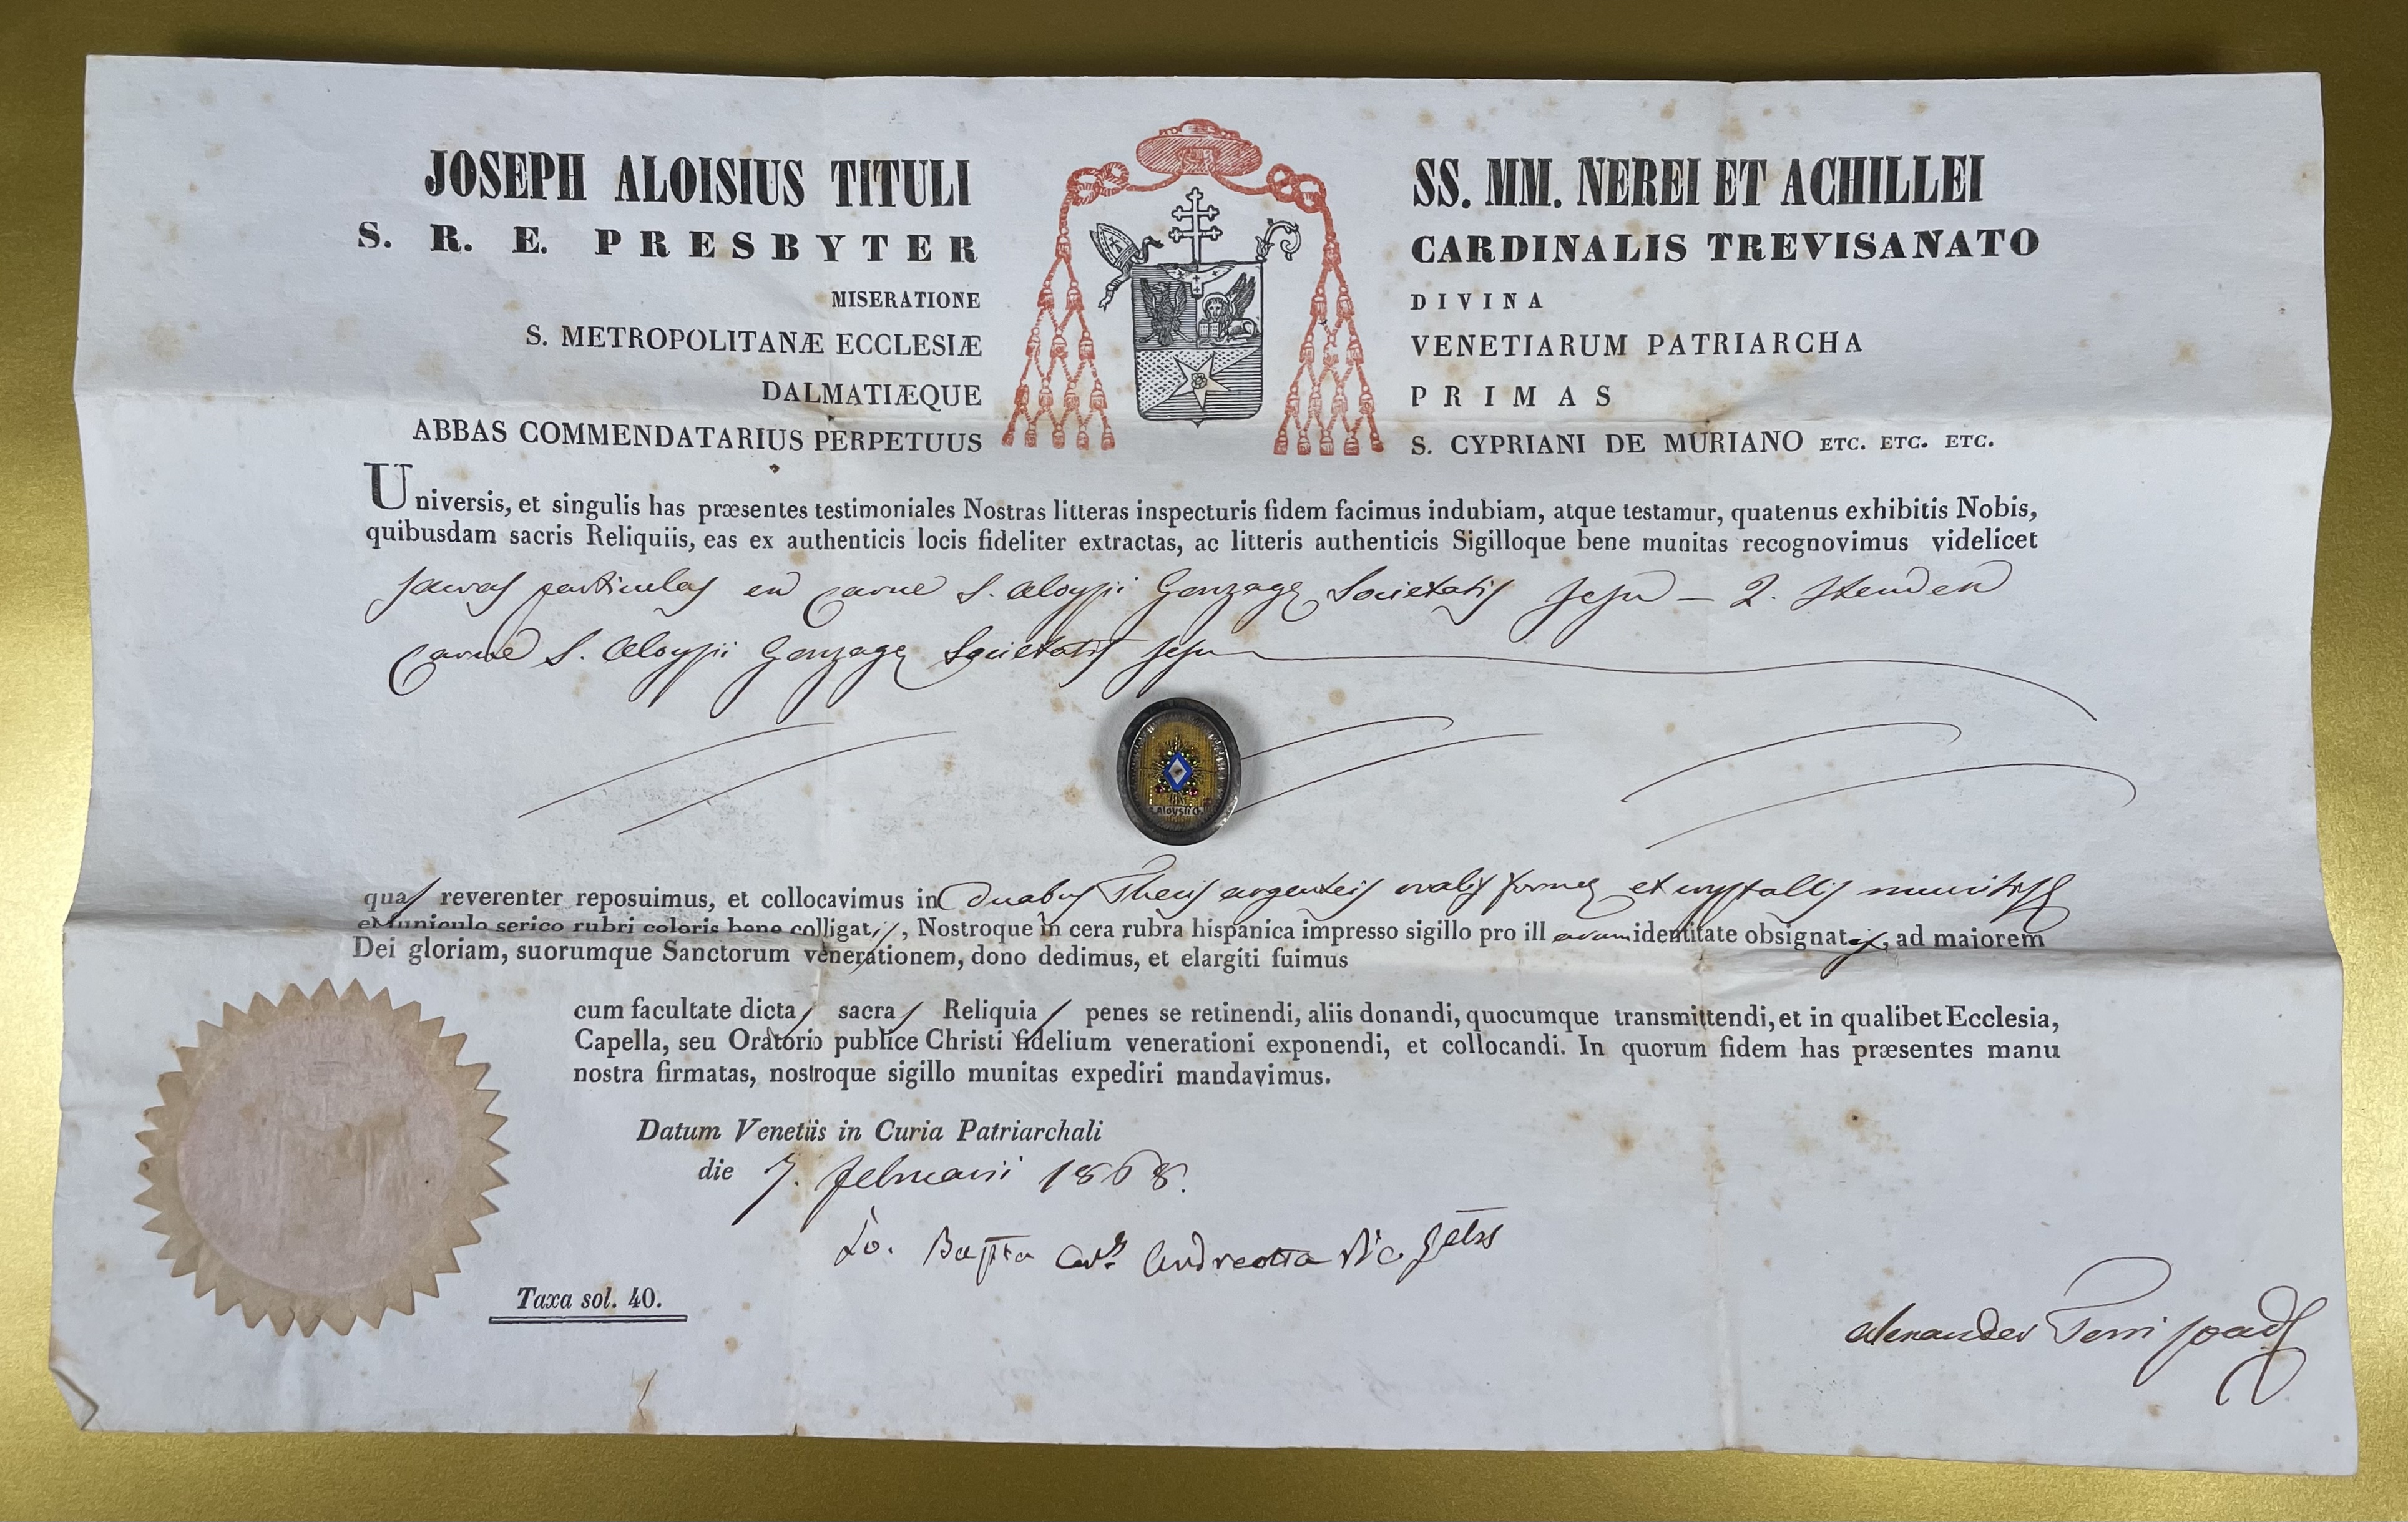 JOSEPH ALOISIUS TITULI SS. MM. NEREI ET ACHILLEI
S. R. E. PRESBYTER CARDINALIS TREVISANATO
MISERATIONE DIVINA
S. METROPOLITANÆ ECCLESIÆ VENETIARUM PATRIARCHA
DALMATIÆQUE PRIMAS
ABBAS COMMENDATARIUS PERPETUUS S. CYPRIANI DE MURIANO ETC. ETC. ETC.
Universis, et singulis has præsentes testimoniales Nostras litteras inspecturis fidem facimus indubiam, atque testamur, quatenus exhibitis Nobis,
quibusdam sacris Reliquiis, eas ex authenticis locis fideliter extractas, ac litteris authenticis Sigilloque bene munitas recognovimus videlicet
sacras particulas ex carne S. Aloysii Gonzagę Societatis Jesu — 2. Item ex
carne S. Aloysii Gonzagę Societatis Jesu
Aloysii G.
quas reverenter reposuimus, et collocavimus in duabus Thecis argenteis ovalis formę et crystallis munitis
funiculo serico rubri coloris bene colligatis, Nostroque in cera rubra hispanica impresso sigillo pro illarum identitate obsignatis, ad maiorem
Dei gloriam, suorumque Sanctorum venerationem, dono dedimus, et elargiti fuimus
cum facultate dictas sacras Reliquias penes se retinendi, aliis donandi, quocumque transmittendi, et in qualibet Ecclesia,
Capella, seu Oratorio publice Christi fidelium venerationi exponendi, et collocandi. In quorum fidem has præsentes manu
nostra firmatas, nostroque sigillo munitas expediri mandavimus.
Datum Venetiis in Curia Patriarchali
die 7. Februarii 1868.
Jo. Bapta Can. Andreotta Vic Gelis
Taxa sol. 40.
Alexander